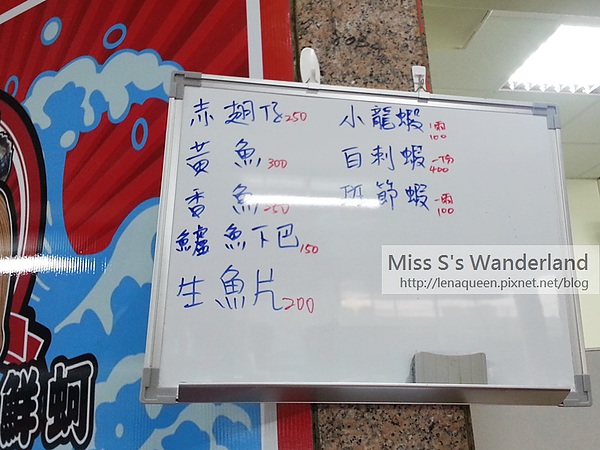 赤翅仔250
黃魚300
香魚250
鱸魚下巴150
生魚片200
小龍蝦1兩100
白刺蝦一份400
斑節蝦一兩100
Miss S's Wanderland
http://lenaqueen.pixnet.net/blog
鮮蚵